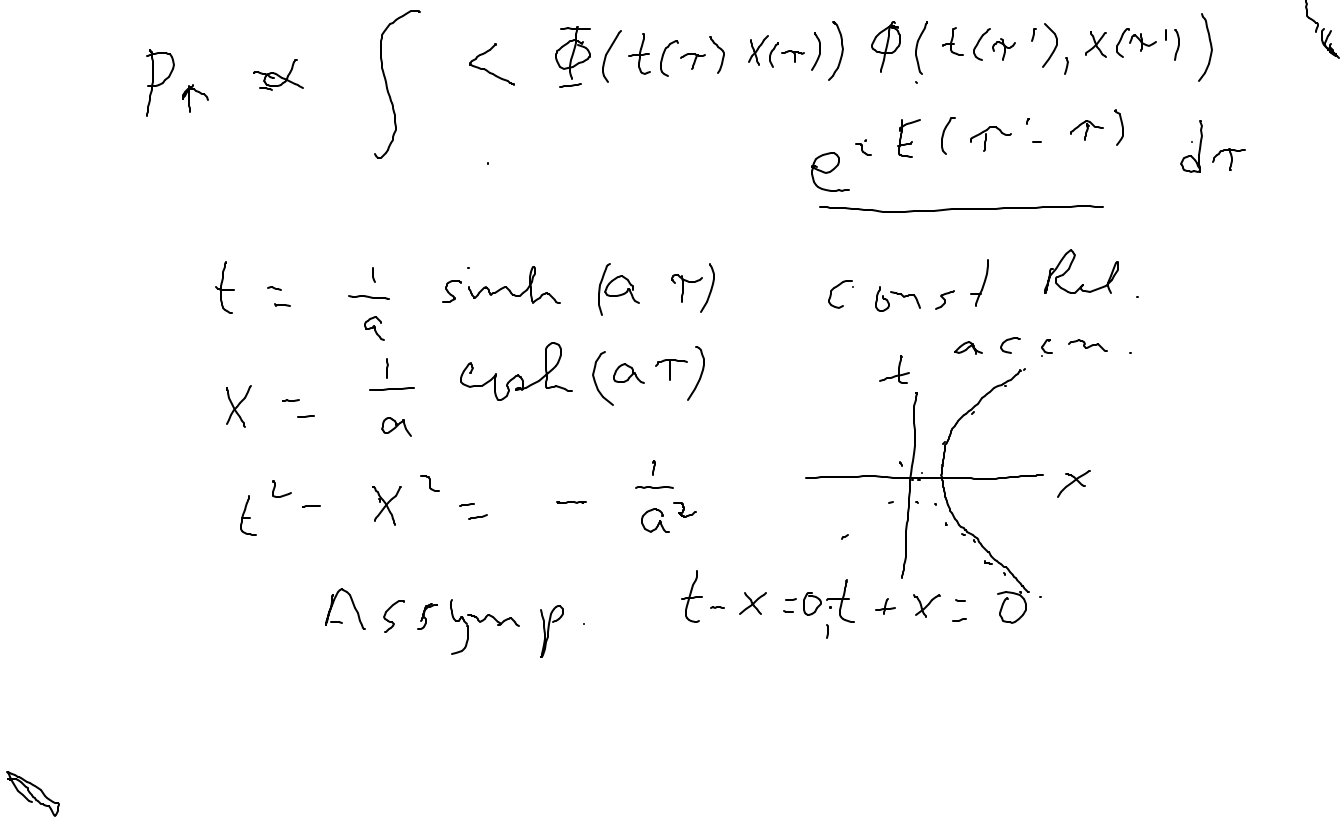 P↑ ∝ ∫ < Φ(t(τ) x(τ)) Φ(t(τ'), x(τ'))
e^{iE(τ'-τ)} dτ
t = 1/a sinh (a τ) const Rel.
accn.
x = 1/a cosh (a τ)
t
x
t² - x² = - 1/a²
Assymp. t-x=0, t+x=0